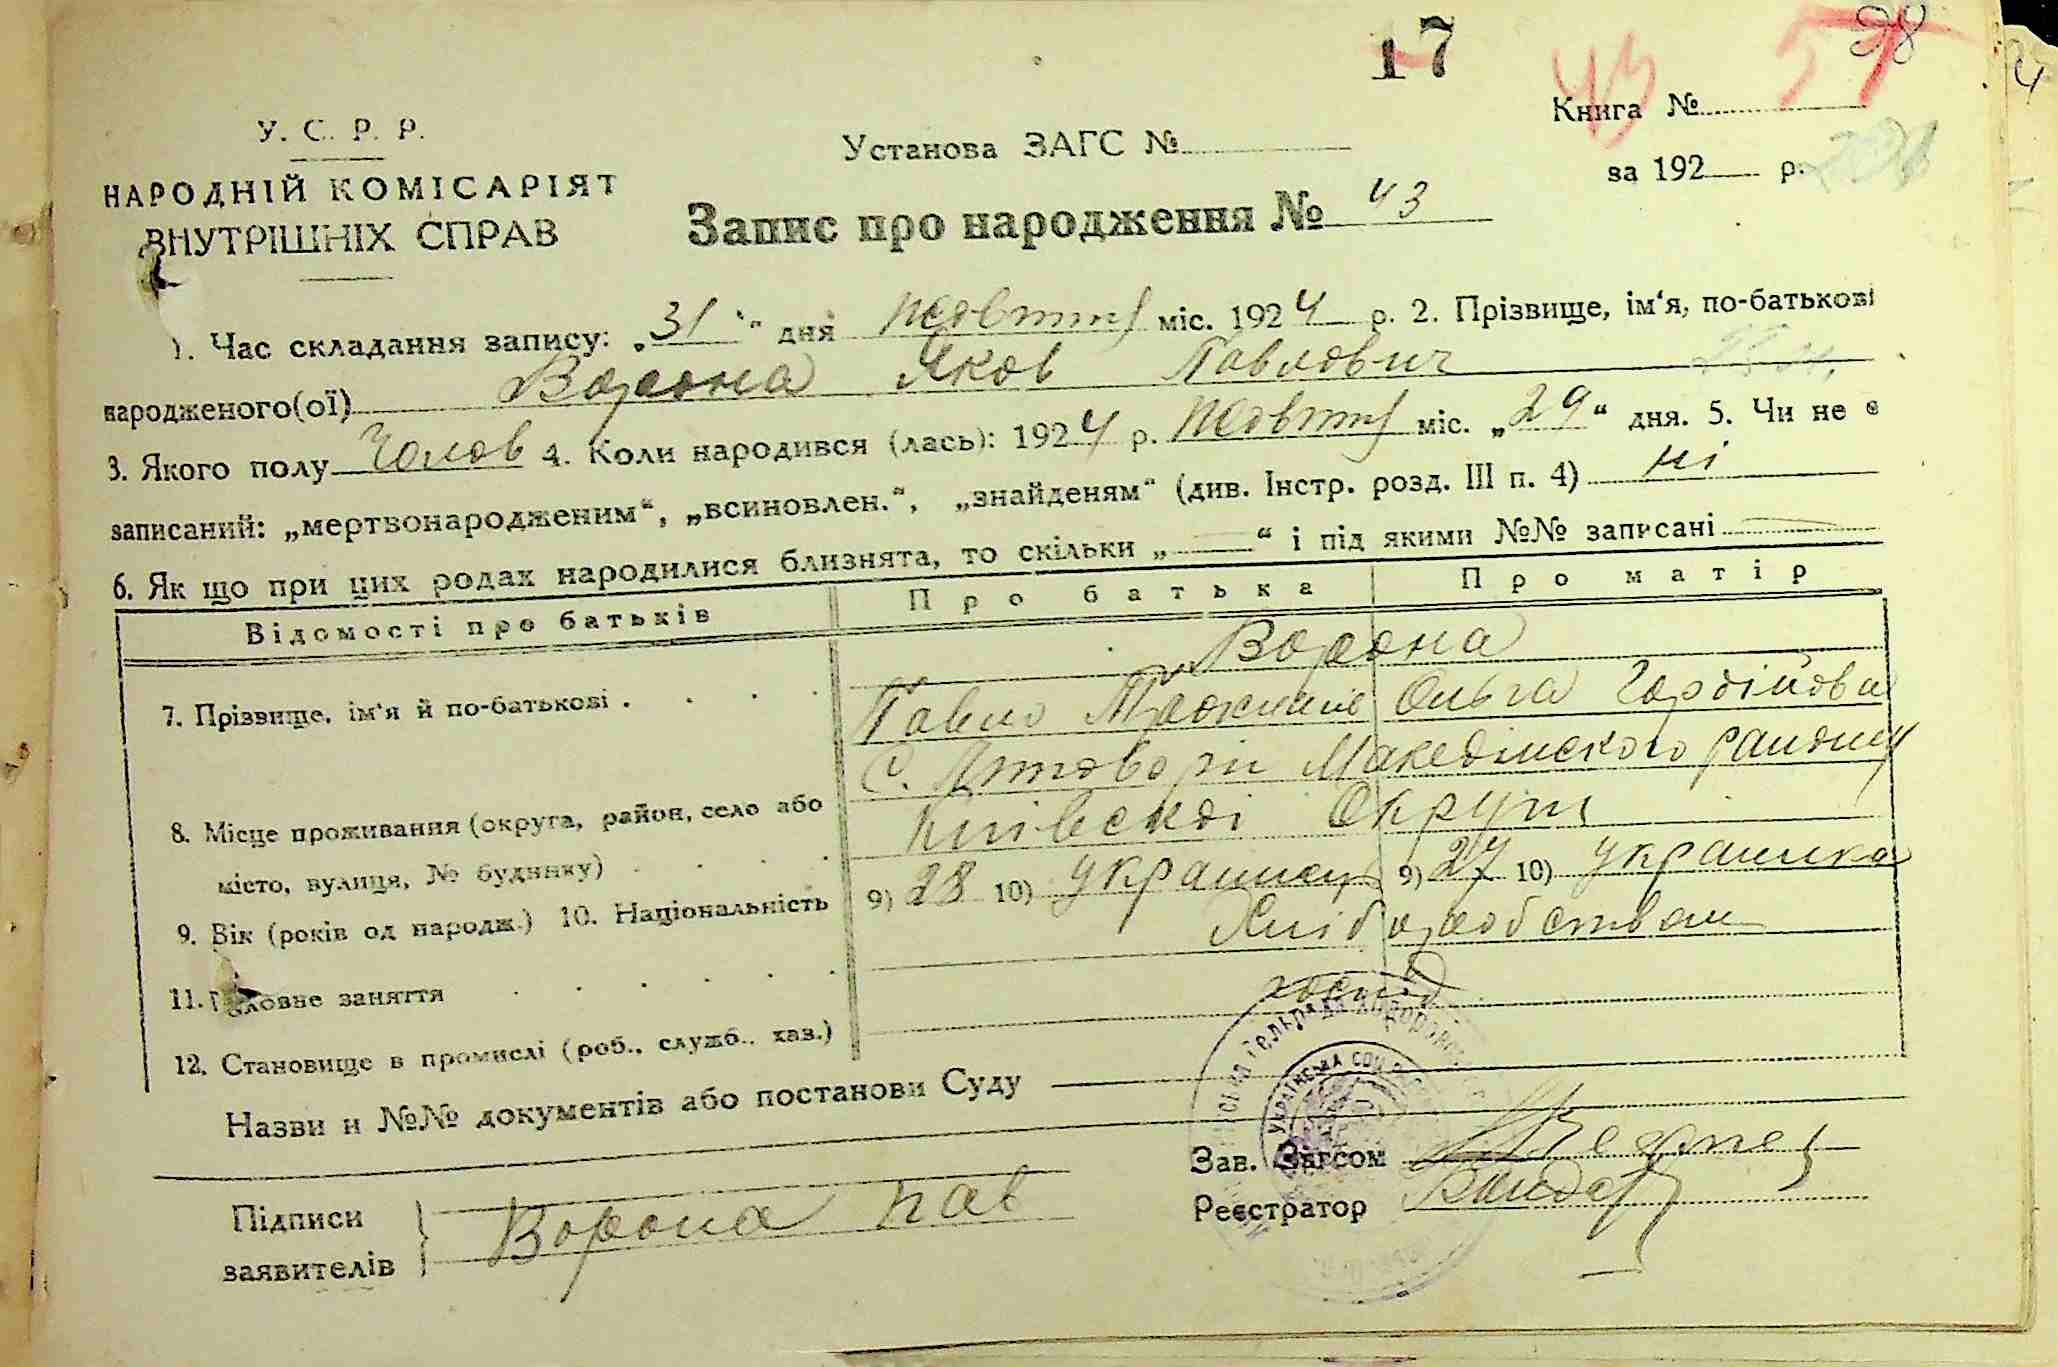 17
43
57
98
Книга №
У. С. Р. Р.
Установа ЗАГС №
за 192 р.
НАРОДНІЙ КОМІСАРІЯТ
ВНУТРІШНІХ СПРАВ
Запис про народження № 43
1. Час складання запису: „31“ дня жовтня міс. 1924 р. 2. Прізвище, ім‘я, по-батькові
народженого(ої) Ворона Яков Павлович
3. Якого полу Чолов 4. Коли народився (лась): 1924 р. жовтня міс. „29“ дня. 5. Чи не є
записаний: „мертвонародженим“, „всиновлен.“, „знайденям“ (див. Інстр. розд. III п. 4) ні
6. Як що при цих родах народилися близнята, то скільки „ “ і під якими №№ записані
Відомості про батьків Про батька Про матір
Ворона
7. Прізвище, ім‘я й по-батькові . Павло Ольга Гордійовна
С. Македонського району
8. Місце проживання (округа, район, село або Київської Округи
місто, вулиця, № будинку)
9. Вік (років од народж.) 10. Національність 9) 28 10) Українець 9) 27 10) Українка
Хліборобством
11. Головне заняття
12. Становище в промислі (роб., служб., хаз.)
Назви и №№ документів або постанови Суду
УКРАЇНСЬКА СОЦ
Зав. Загсом
Реєстратор
Підписи
заявителів
Ворона Пав